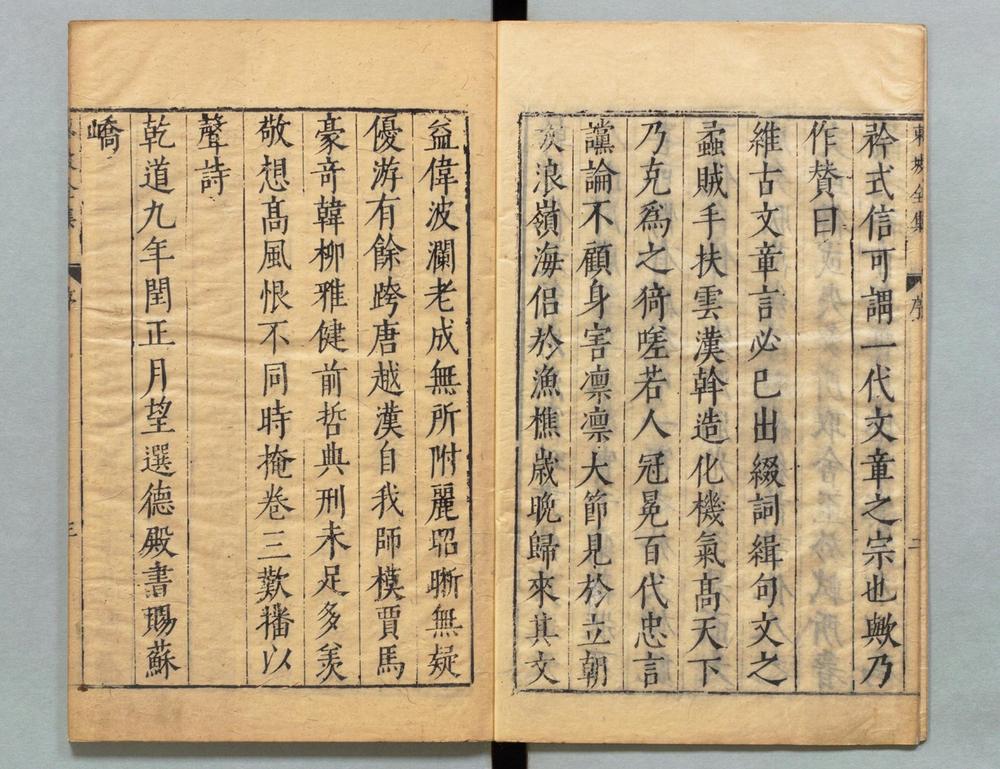 東坡全集 序 二
矜式信可謂一代文章之宗也歟乃
作贊曰
維古文章言必已出綴詞緝句文之
蟊賊手扶雲漢幹造化機氣髙天下
乃克爲之猗嗟若人冠冕百代忠言
讜論不顧身害凛凛大節見於立朝
放浪嶺海侣於漁樵歲晚歸來其文
益偉波瀾老成無所附麗昭晣無疑
優游有餘跨唐越漢自我師模賈馬
豪竒韓柳雅健前哲典刑未足多羡
敬想髙風恨不同時掩卷三歎播以
聲詩
乾道九年閏正月望選德殿書賜蘇
嶠
集 序 三